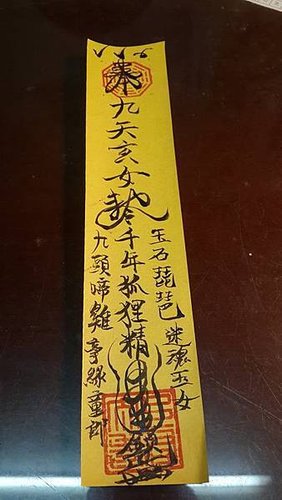 奉九天玄女勅千年狐狸精
玉石琵琶 迷魂玉女
九頭啼雞 牽緣童郎